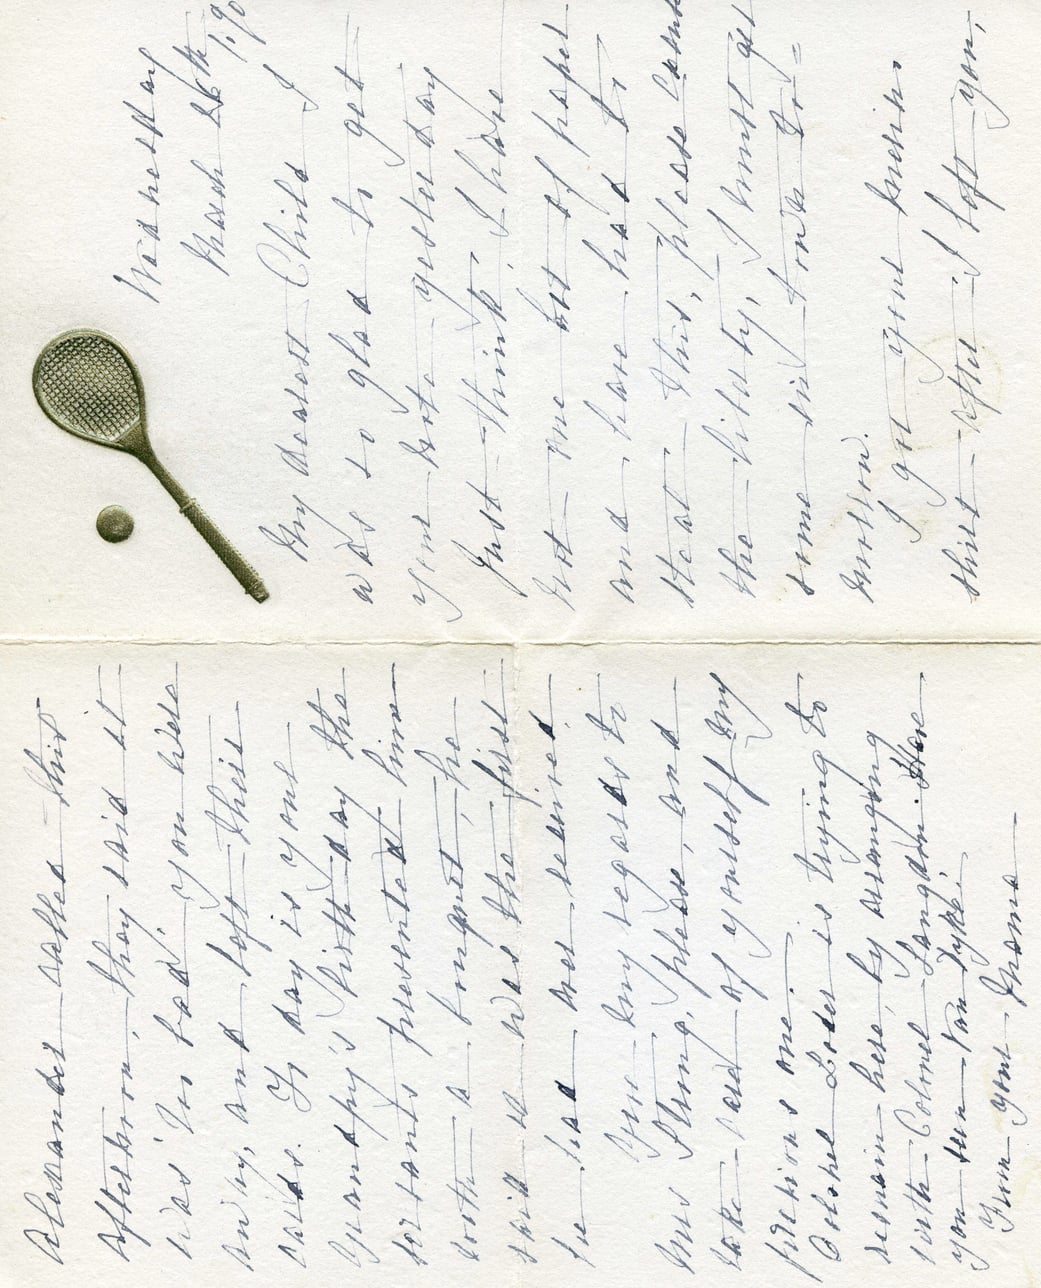 Wednesday
March 26th, '90
My dearest Child I
was so glad to get
your note yesterday
Just think! I have
not one bit of paper
and have had to
steal this, please count
the liberty, I must get
some in town to-
morrow.
I got your
this after I left you,
Alexander called this
afternoon, they said it
was too bad, you were
away, and left their
cards. To day is your
Grandpy's birthday the
servants presented him
with a bouquet, he
said it was the first
he had ever received.
Give my regards to
Mrs Strong, please, and
take care of yourself my
precious one.
Colonel is trying to
remain here, by arranging
with Colonel Langdon. Have
you seen Van Dyke?
From your Mama